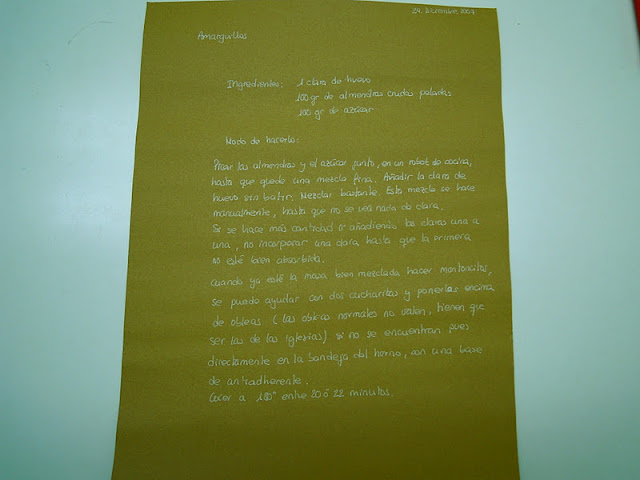 24. Diciembre 2007
Amarguillos
Ingredientes: 1 clara de huevo
100 gr de almendras crudas peladas
100 gr de azúcar
Modo de hacerlo:
Picar las almendras y el azúcar junto, en un robot de cocina,
hasta que quede una mezcla fina. Añadir la clara de
huevo sin batir. Mezclar bastante. Esta mezcla se hace
manualmente, hasta que no se vea nada de clara.
Si se hace más cantidad ir añadiendo las claras una a
una, no incorporar una clara hasta que la primera
no esté bien absorbida.
Cuando ya esté la masa bien mezclada hacer montoncitos,
se puede ayudar con dos cucharitas y ponerlas encima
de obleas (las obleas normales no valen, tienen que
ser las de las iglesias) si no se encuentran pues
directamente en la bandeja del horno, con una base
de antiadherente.
Cocer a 180° entre 20 ó 22 minutos.